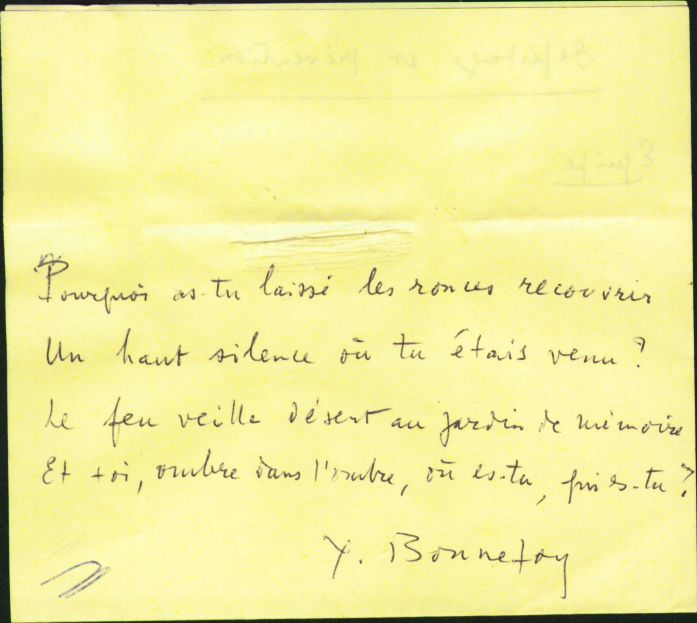 Pourquoi as-tu laissé les ronces recouvrir
Un haut silence où tu étais venu ?
Le feu veille désert au jardin de mémoire
Et toi, ombre dans l'ombre, où es-tu, qui es-tu ?
Y. Bonnefoy